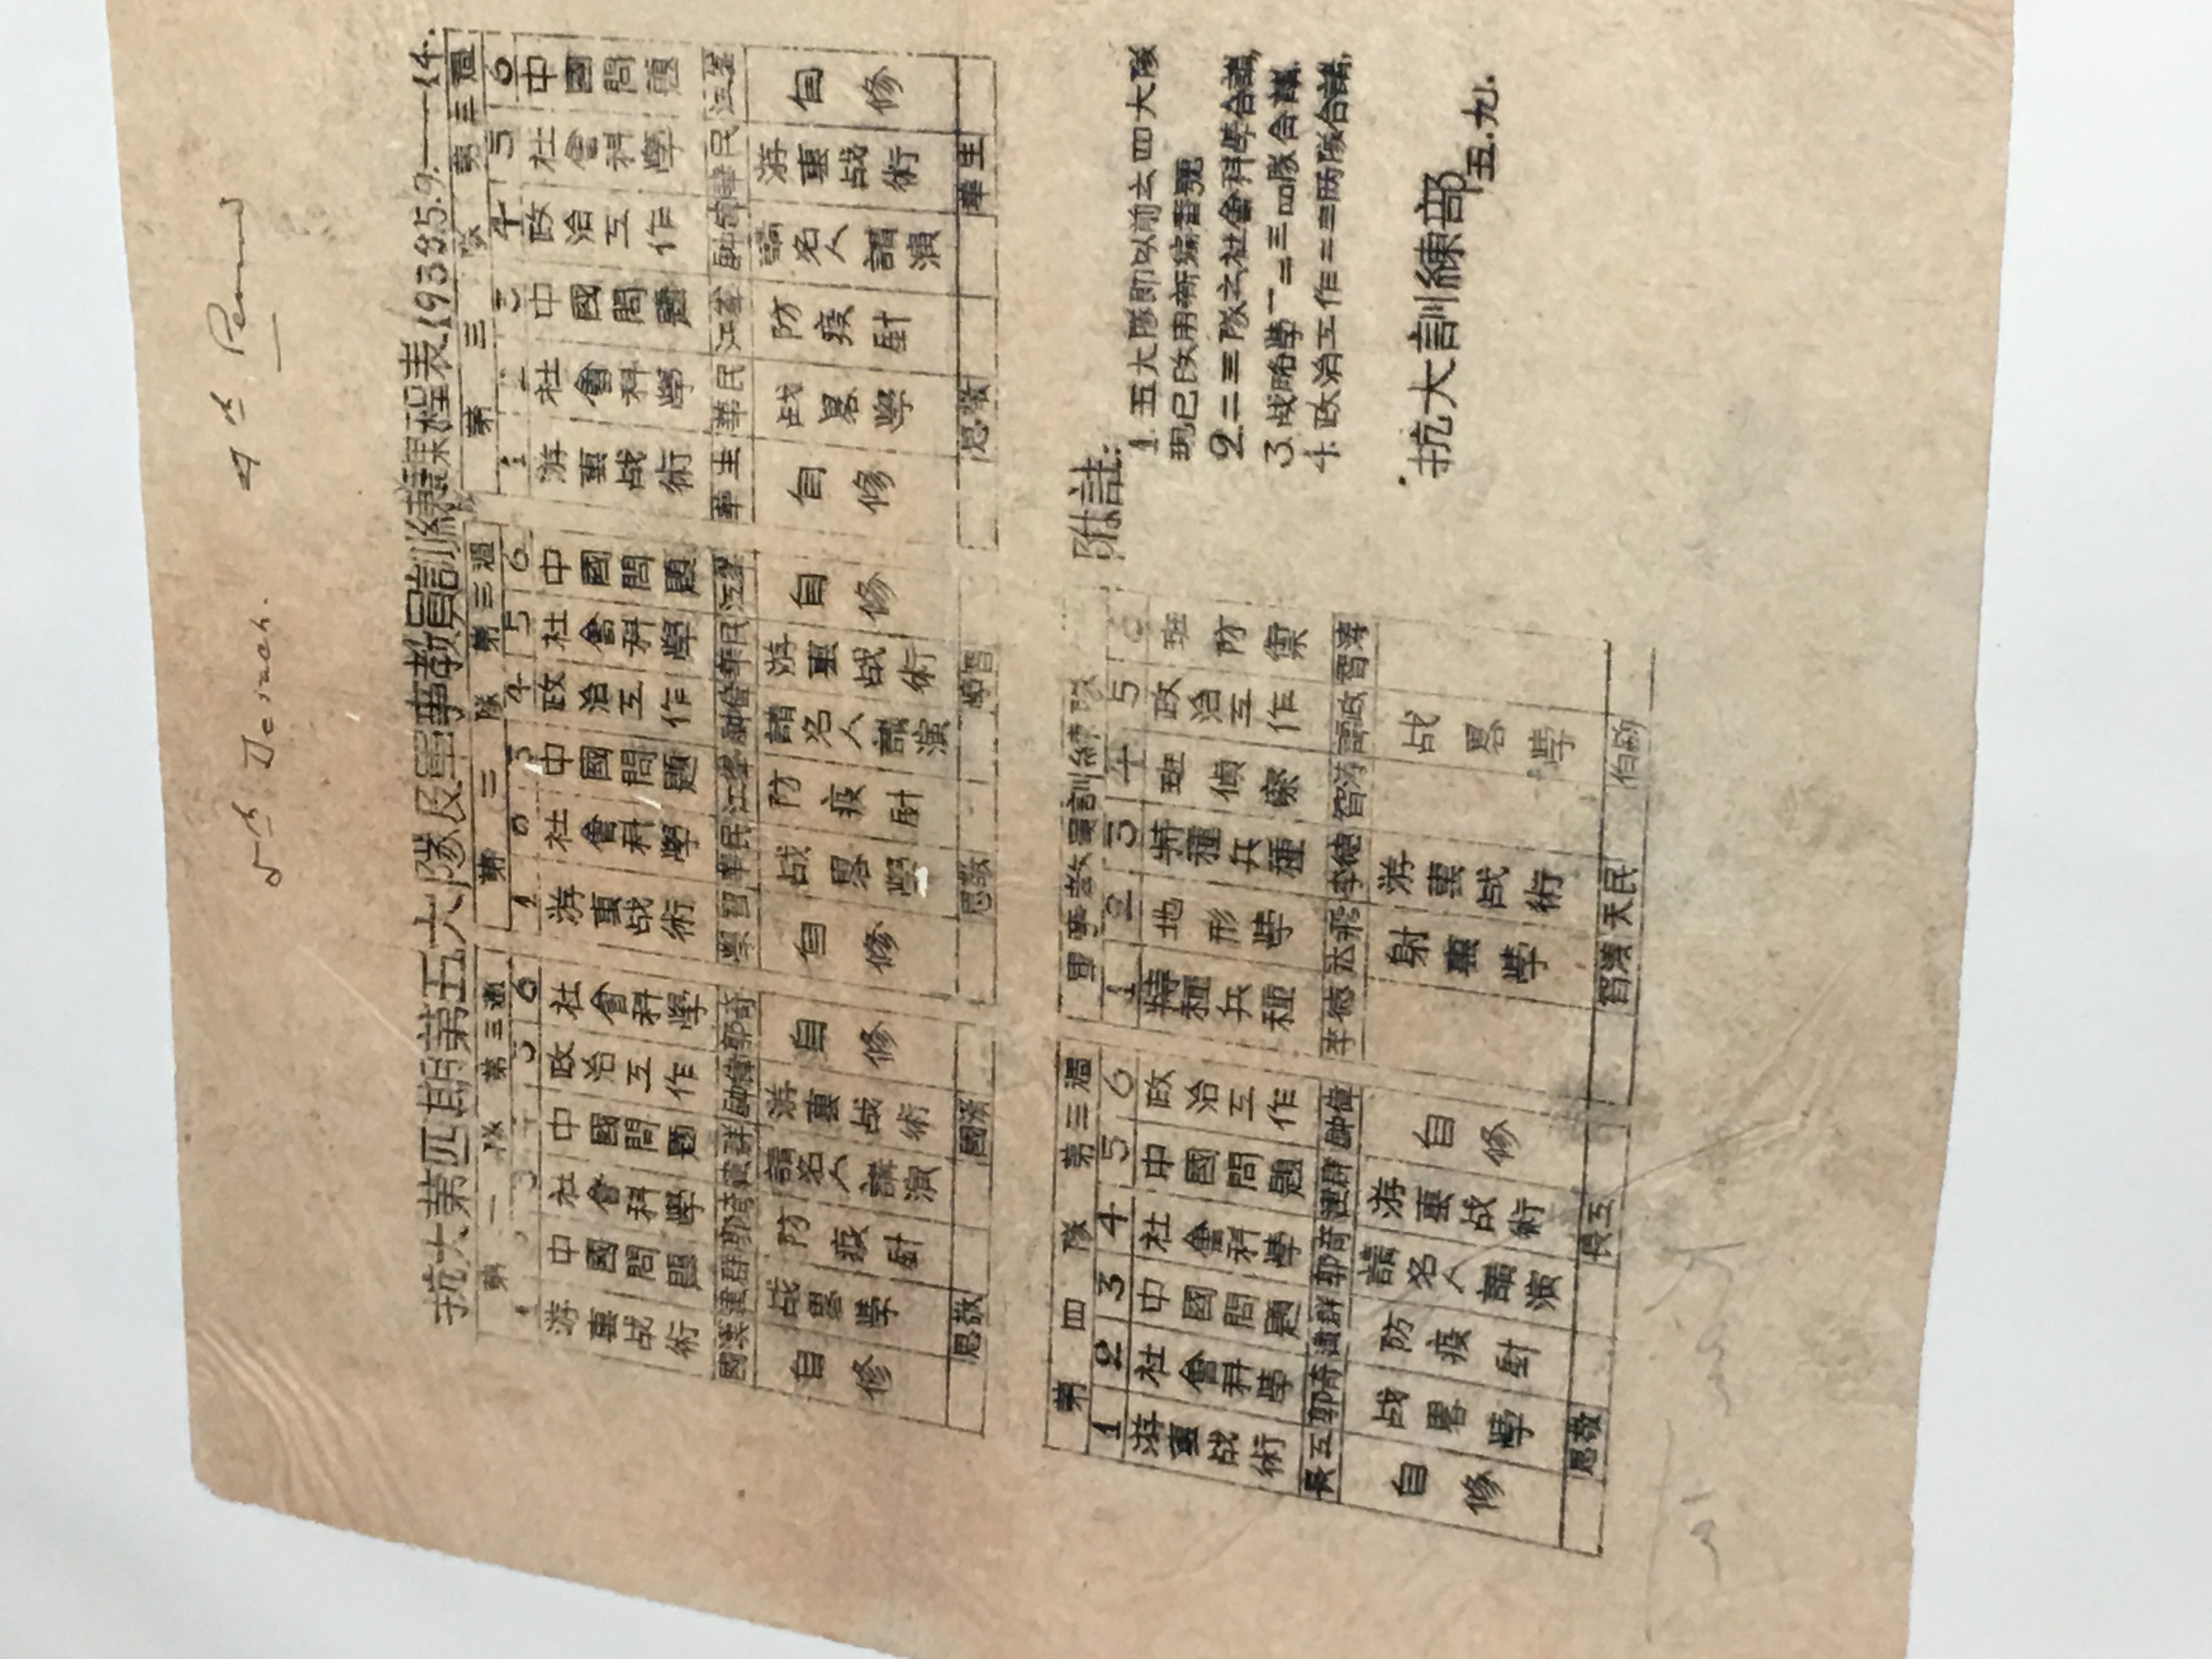 5th Detach.
4th Period
抗大第四期第五大隊及軍事教員訓練課程表 1938.5.9.——14.
第一隊 第三週
1 2 3 4 5 6
游击战術 中國問題 社會科學 中國問題 政治工作 社會科學
國漢 建群 郭奇 建群 鈡偉 郭奇
自修 战畧學 防疫針 請名人講演 游击战術 自修
思敬
第二隊 第三週
1 2 3 4 5 6
游击战術 社會科學 中國問題 政治工作 社會科學 中國問題
學習 華民 江峯 鈡偉 華民 江峯
自修 战畧學 防疫針 請名人講演 游击战術 自修
思敬 學習
第三隊 第三週
1 2 3 4 5 6
游击战術 社會科學 中國問題 政治工作 社會科學 中國問題
華生 華民 江峯 鈡偉 華民 江峯
自修 战畧學 防疫針 請名人講演 游击战術 自修
思敬 華生
第四隊 第三週
1 2 3 4 5 6
游击战術 社會科學 中國問題 社會科學 中國問題 政治工作
長工 郭奇 建群 郭奇 建群 鈡偉
自修 战畧學 防疫針 請名人講演 游击战術 自修
思敬 長工
軍事教員訓練隊
1 2 3 4 5 6
特種兵種 地形學 特種兵種 班偵察 政治工作 班防禦
李德 李德 智濤 智濤
射击學 游击战術 战畧學
智濤 天民
附註：
1. 五大隊即以前之四大隊
現已改用新編番號
2. 二三隊之社會科學合講,
3. 战略學一二三四隊合講.
4. 政治工作二三两隊合講,
抗大訓練部
五.九.